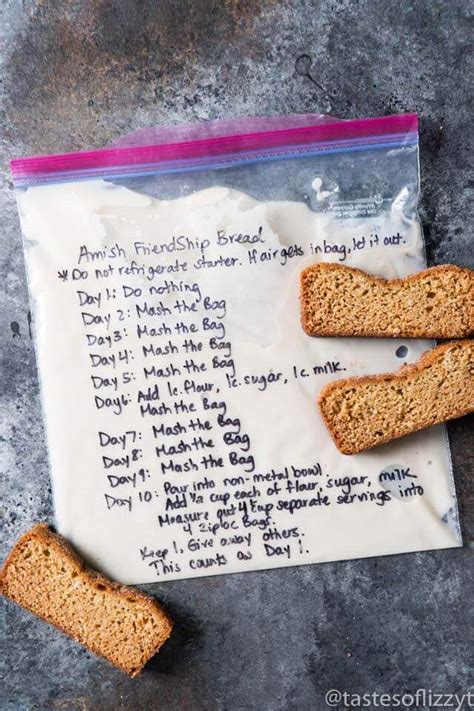 Amish FriendShip Bread
* Do not refrigerate starter. If air gets in bag, let it out.
Day 1: Do nothing
Day 2: Mash the Bag
Day 3: Mash the Bag
Day 4: Mash the Bag
Day 5: Mash the Bag
Day 6: Add 1c. flour, 1c. sugar, 1c. milk.
Mash the Bag
Day 7: Mash the Bag
Day 8: Mash the Bag
Day 9: Mash the Bag
Day 10: Pour into non-metal bowl
Add 1/2 cup each of flour, sugar, milk
Measure out 4 cup separate servings into
4 Ziploc Bags.
Keep 1, Give away others.
This counts as Day 1.
@tastesoflizzyt